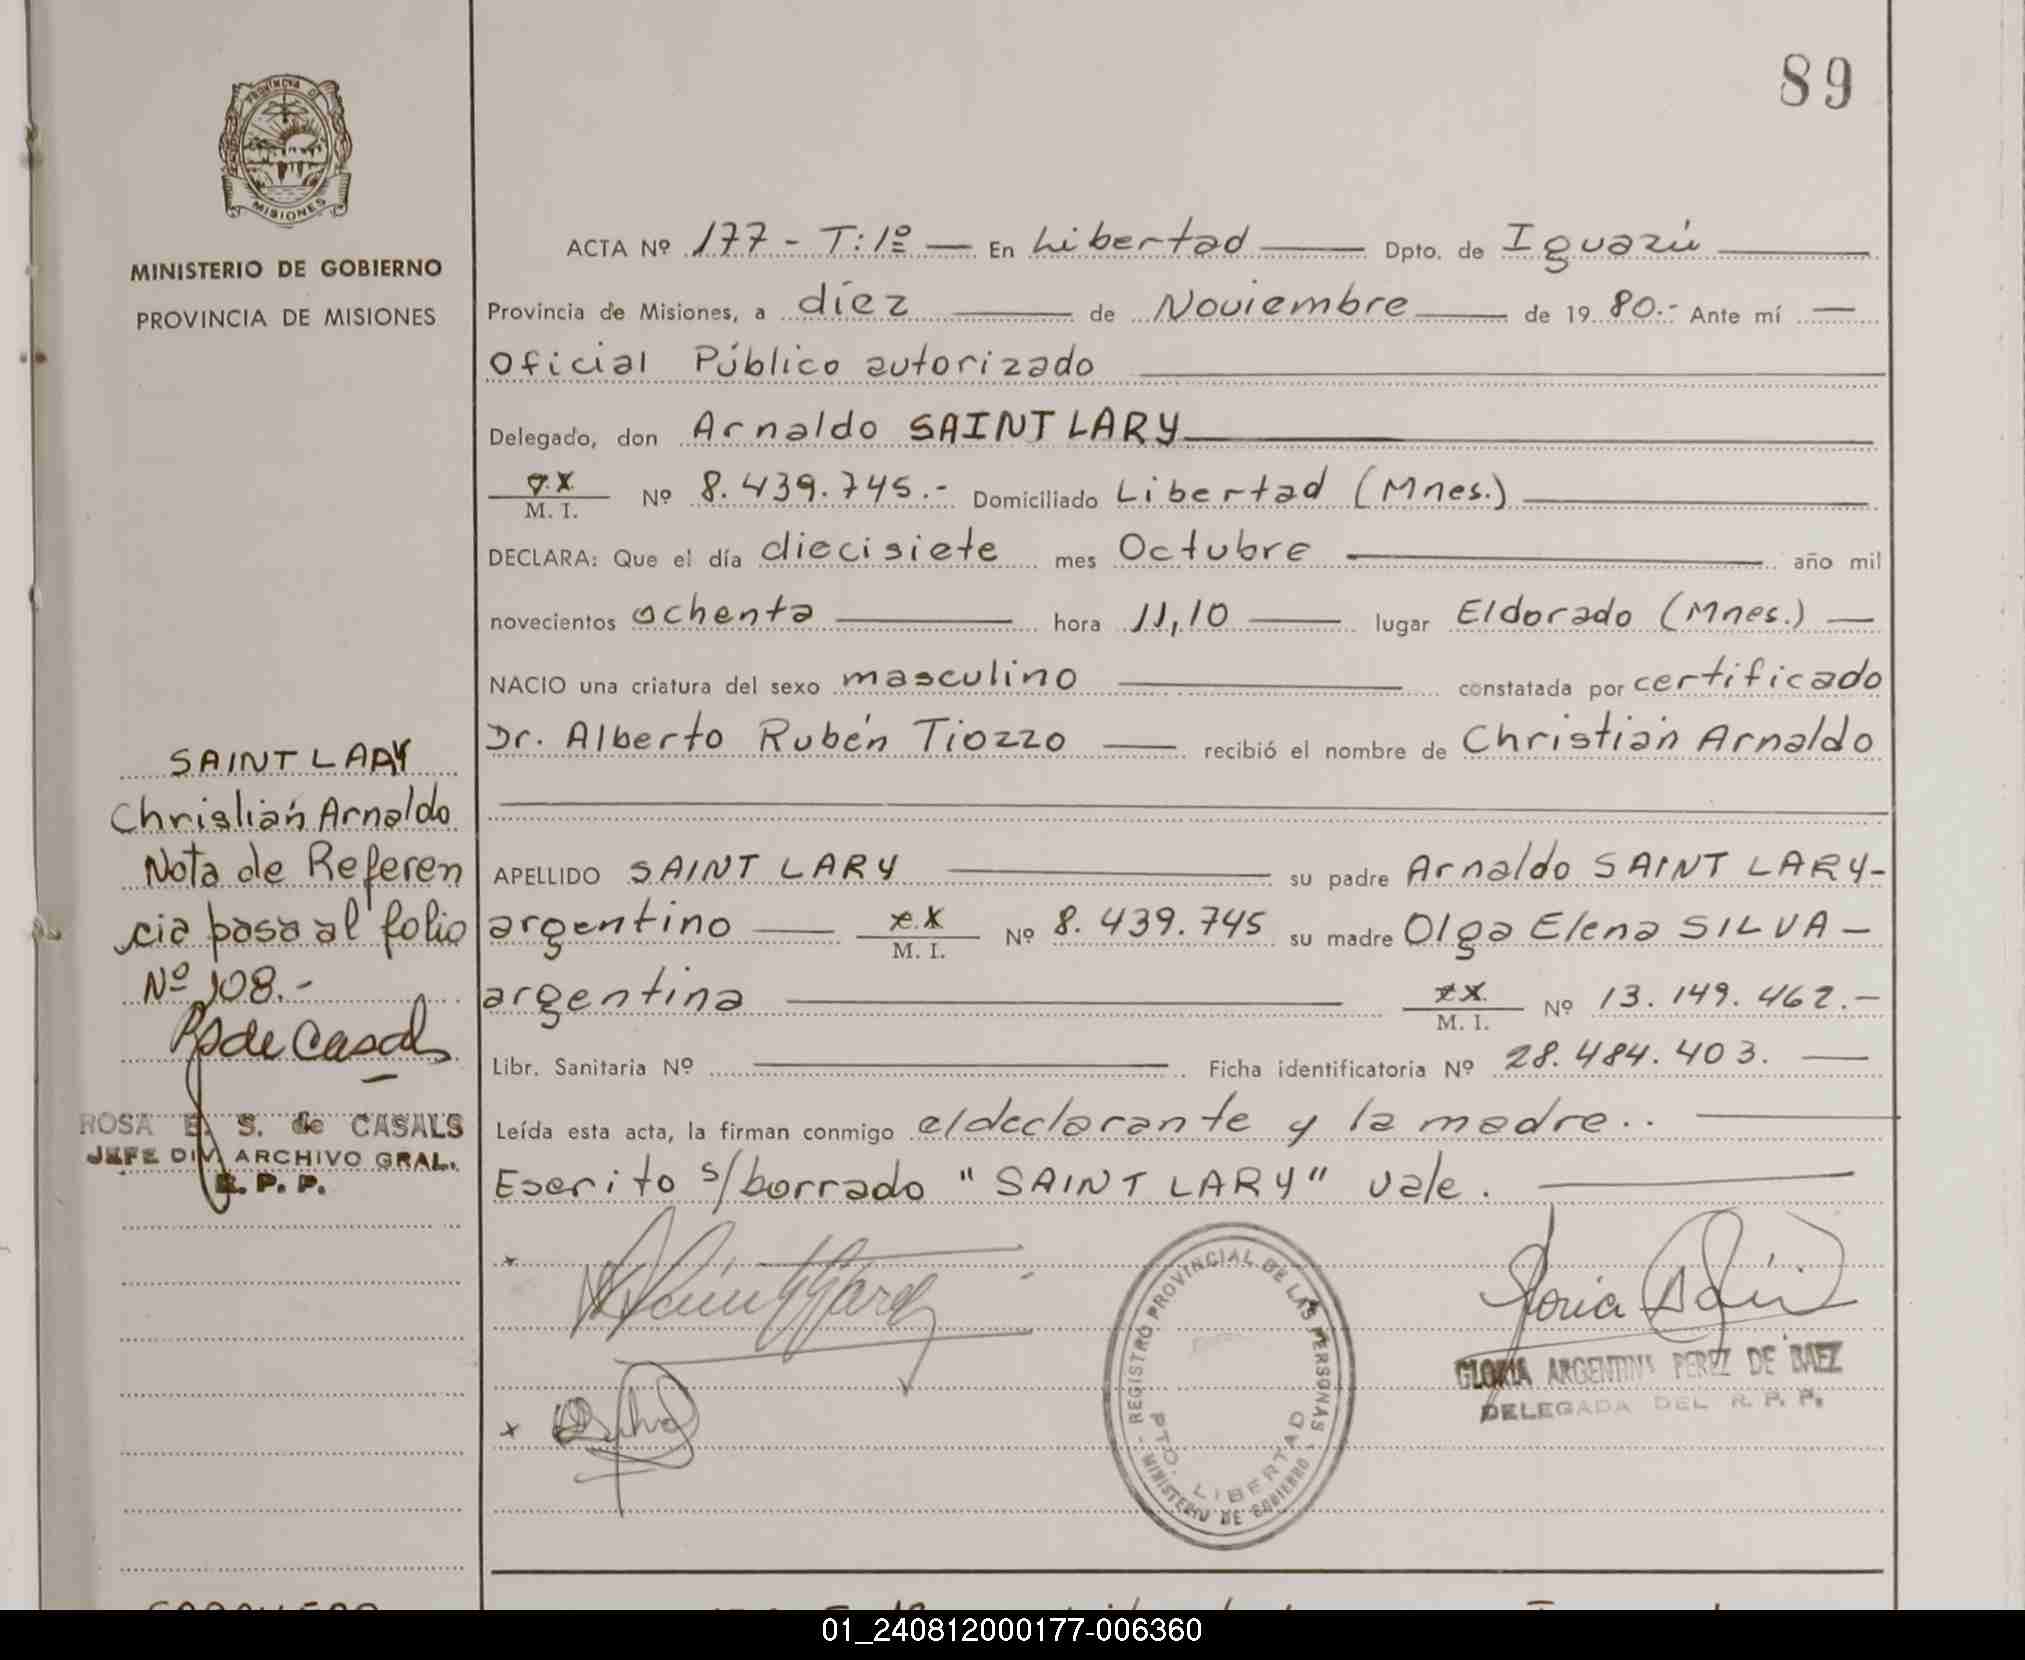 89
PROVINCIA DE
MISIONES
MINISTERIO DE GOBIERNO
PROVINCIA DE MISIONES
ACTA Nº 177 - T:1º — En Libertad — Dpto. de Iguazú
Provincia de Misiones, a diez — de Noviembre — de 19 80.- Ante mí —
Oficial Público autorizado
Delegado, don Arnaldo SAINT LARY
M. I. Nº 8.439.745.- Domiciliado Libertad (Mnes.)
DECLARA: Que el día diecisiete mes Octubre — año mil
novecientos ochenta — hora 11,10 — lugar Eldorado (Mnes.) —
NACIO una criatura del sexo masculino — constatada por certificado
Dr. Alberto Rubén Tiozzo — recibió el nombre de Christián Arnaldo
APELLIDO SAINT LARY — su padre Arnaldo SAINT LARY-
argentino — M. I. Nº 8.439.745 su madre Olga Elena SILVA -
argentina — M. I. Nº 13.149.462.-
Libr. Sanitaria Nº — Ficha identificatoria Nº 28.484.403. —
Leída esta acta, la firman conmigo el declarante y la madre..
Escrito s/borrado "SAINT LARY" vale.
SAINT LARY
Christián Arnaldo
Nota de Referen
cia pasa al folio
Nº 108.-
ROSA E. S. de CASALS
JEFE DIV. ARCHIVO GRAL.
R. P. P.
REGISTRO PROVINCIAL DE LAS PERSONAS
PTO. LIBERTAD
MINISTERIO DE GOBIERNO
GLORIA ARGENTINA PEREZ DE BAEZ
DELEGADA DEL R. P. P.
01_240812000177-006360